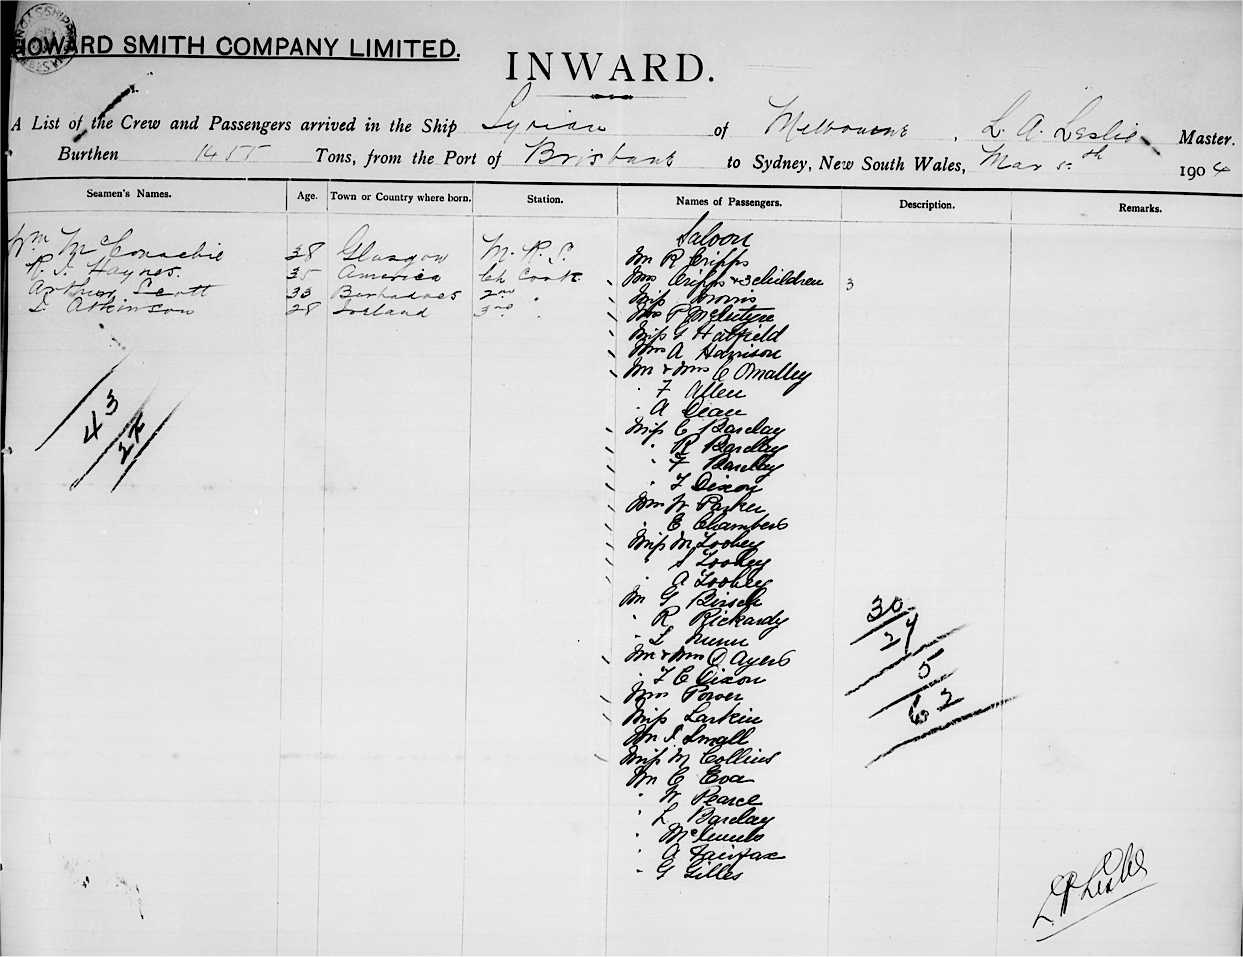 HOWARD SMITH COMPANY LIMITED.
INWARD.
A List of the Crew and Passengers arrived in the Ship Syrian of Melbourne, L. A. Leslie Master.
Burthen 1455 Tons, from the Port of Brisbane to Sydney, New South Wales, Mar 5th 1904
Seamen's Names. Age. Town or Country where born. Station. Names of Passengers. Description. Remarks.
Saloon
Wm McConachie 38 Glasgow M. R. S. Mr R Cripps
R. S. Haynes. 35 America Ch Cook Mrs Cripps + 3 children 3
Arthur Scott 33 Barbadoes 2nd " Miss Morris
Atkinson 28 Ireland 3rd " Mrs P McIntyre
Miss G Hatfield
Mrs A Harrison
Mr + Mrs C OMalley
" F Allen
" A Dean
Miss C Barclay
" R Barclay
" F Barclay
" F Dixon
Mrs W Parker
" E Chambers
Miss M Toohey
" S Toohey
" A Toohey
Mr G Birsch
" R Rickardy
" L Nunn
Mr + Mrs D Ayers
" F C Dixon
Mrs Power
Miss Larkin
Mr J. Small
Miss M Collins
Mr C Eva
" W Pearce
" L Barclay
"
" A Fairfax
" G Gilles
43
30
5
62
L A Leslie